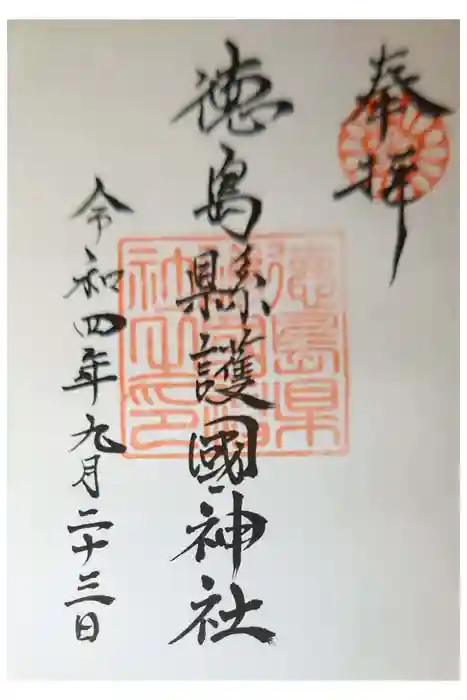 奉拝
徳島縣護國神社
令和四年九月二十三日
徳島県
社之印